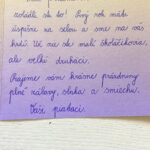 zvládli ste to! Prvý rok máte
úspešne za sebou a sme na vás
hrdí. Už nie ste malí školáčikovia,
ale veľkí druháci.
Prajeme vám krásne prázdniny
plné zábavy, slnka a smiechu.
Vaši piataci.